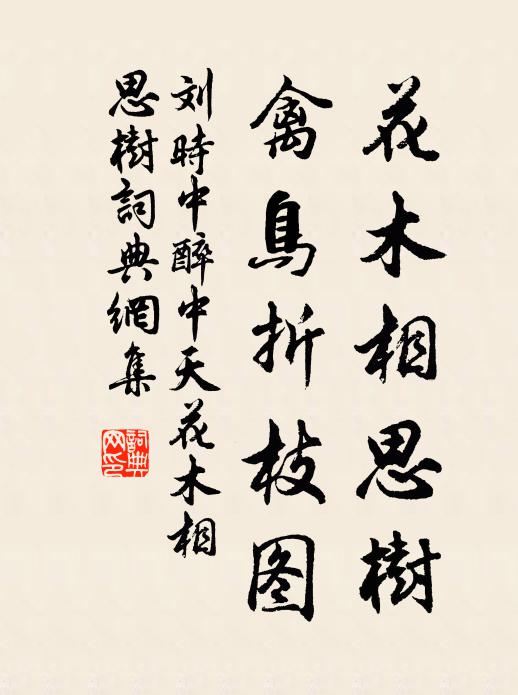 花木相思樹
禽鳥折枝图
刘時中醉中天花木相
思樹詞典網集
詞典网印